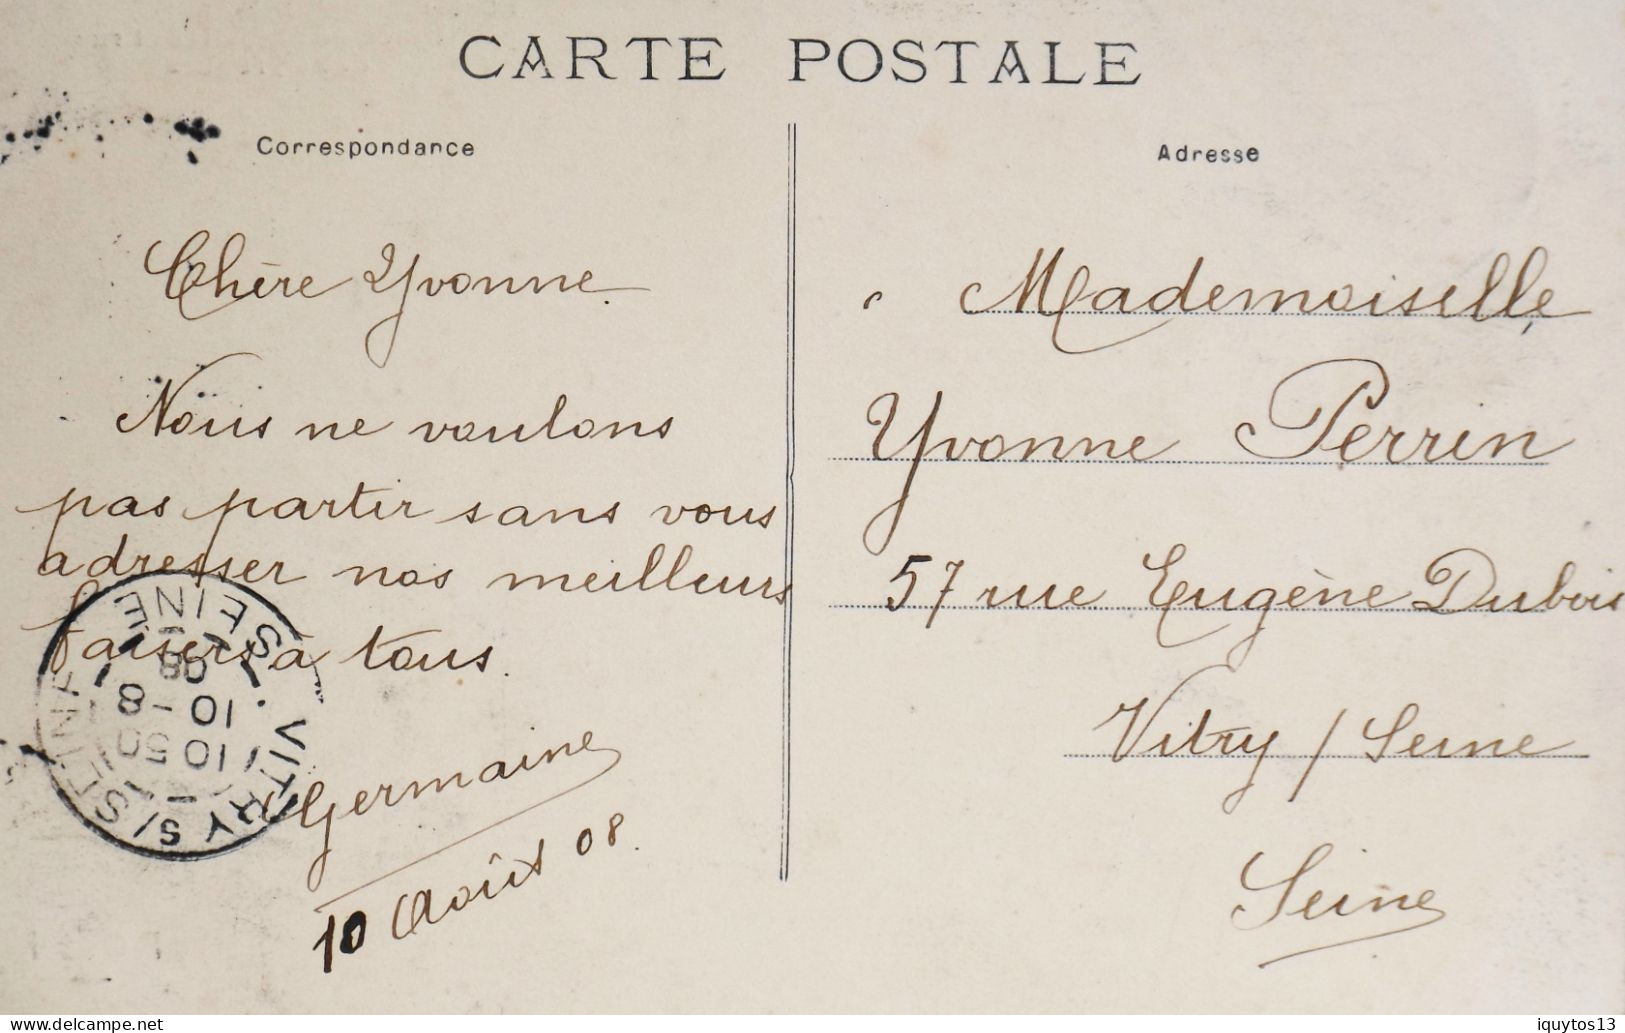 CARTE POSTALE
Correspondance
Chère Yvonne.
Nous ne voulons
pas partir sans vous
adresser nos meilleurs
baisers à tous.
Germaine
10 Août 08.
Adresse
Mademoiselle
Yvonne Perrin
57 rue Eugène Dubois
Vitry / Seine
Seine
VITRY S/ SEINE
SEINE
10 50
10 - 8
08
www.delcampe.net
iquytos13